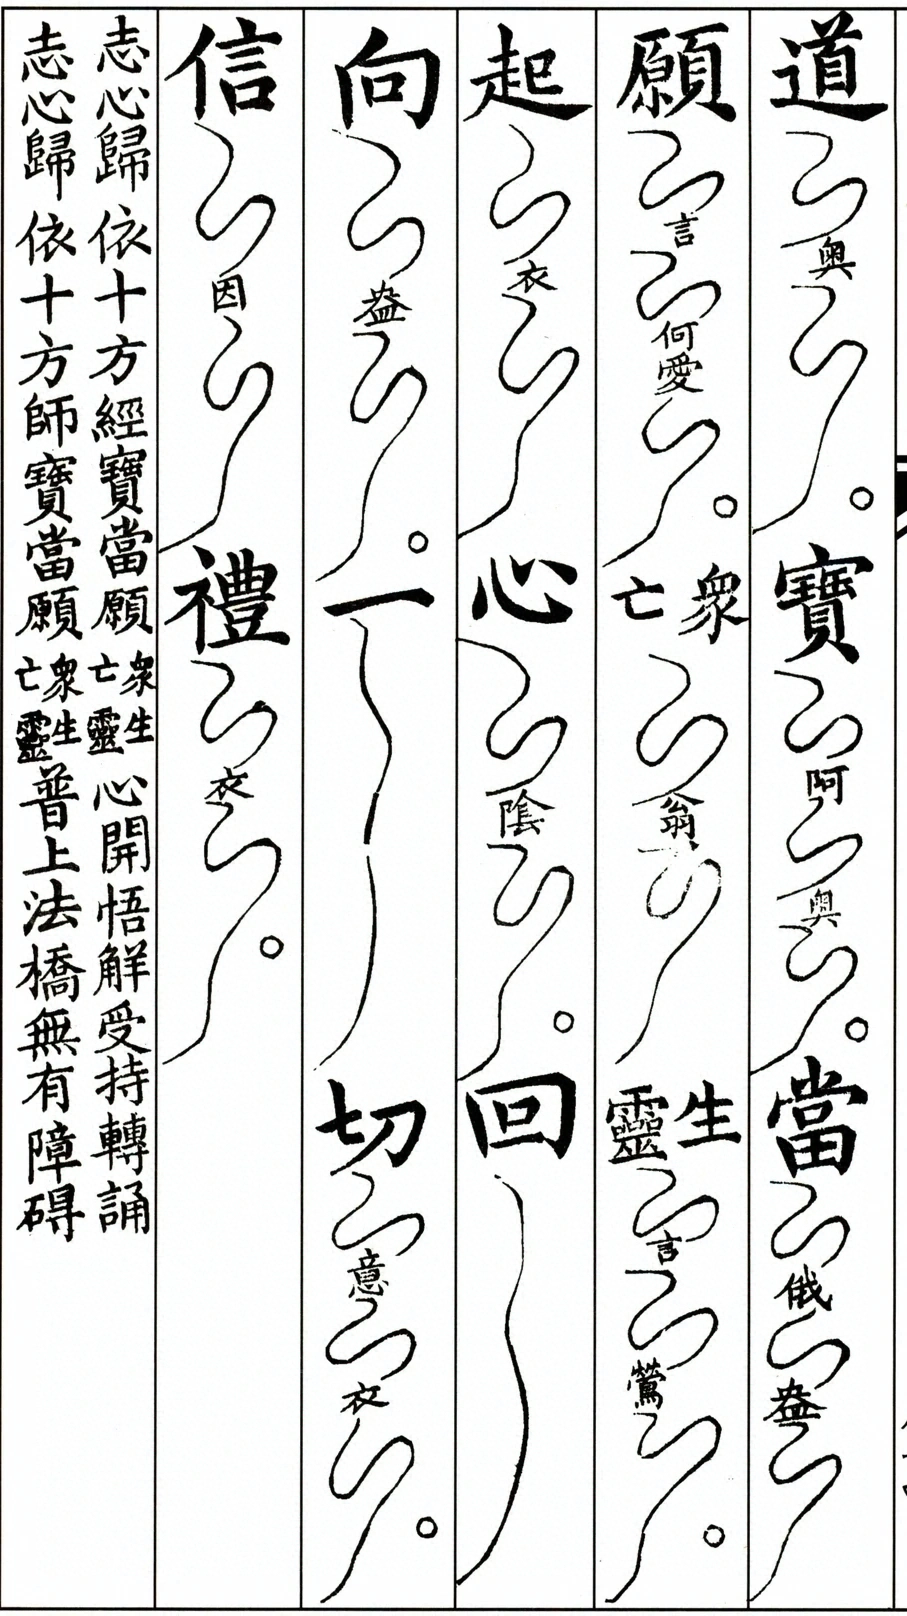 道奥寶阿奥當俄盎
願言何愛衆亡翁生靈言鶯
起衣心陰回
向盎一切意衣
信因禮衣
志心歸依十方經寶當願衆生亡靈心開悟解受持轉誦
志心歸依十方師寶當願衆生亡靈普上法橋無有障碍